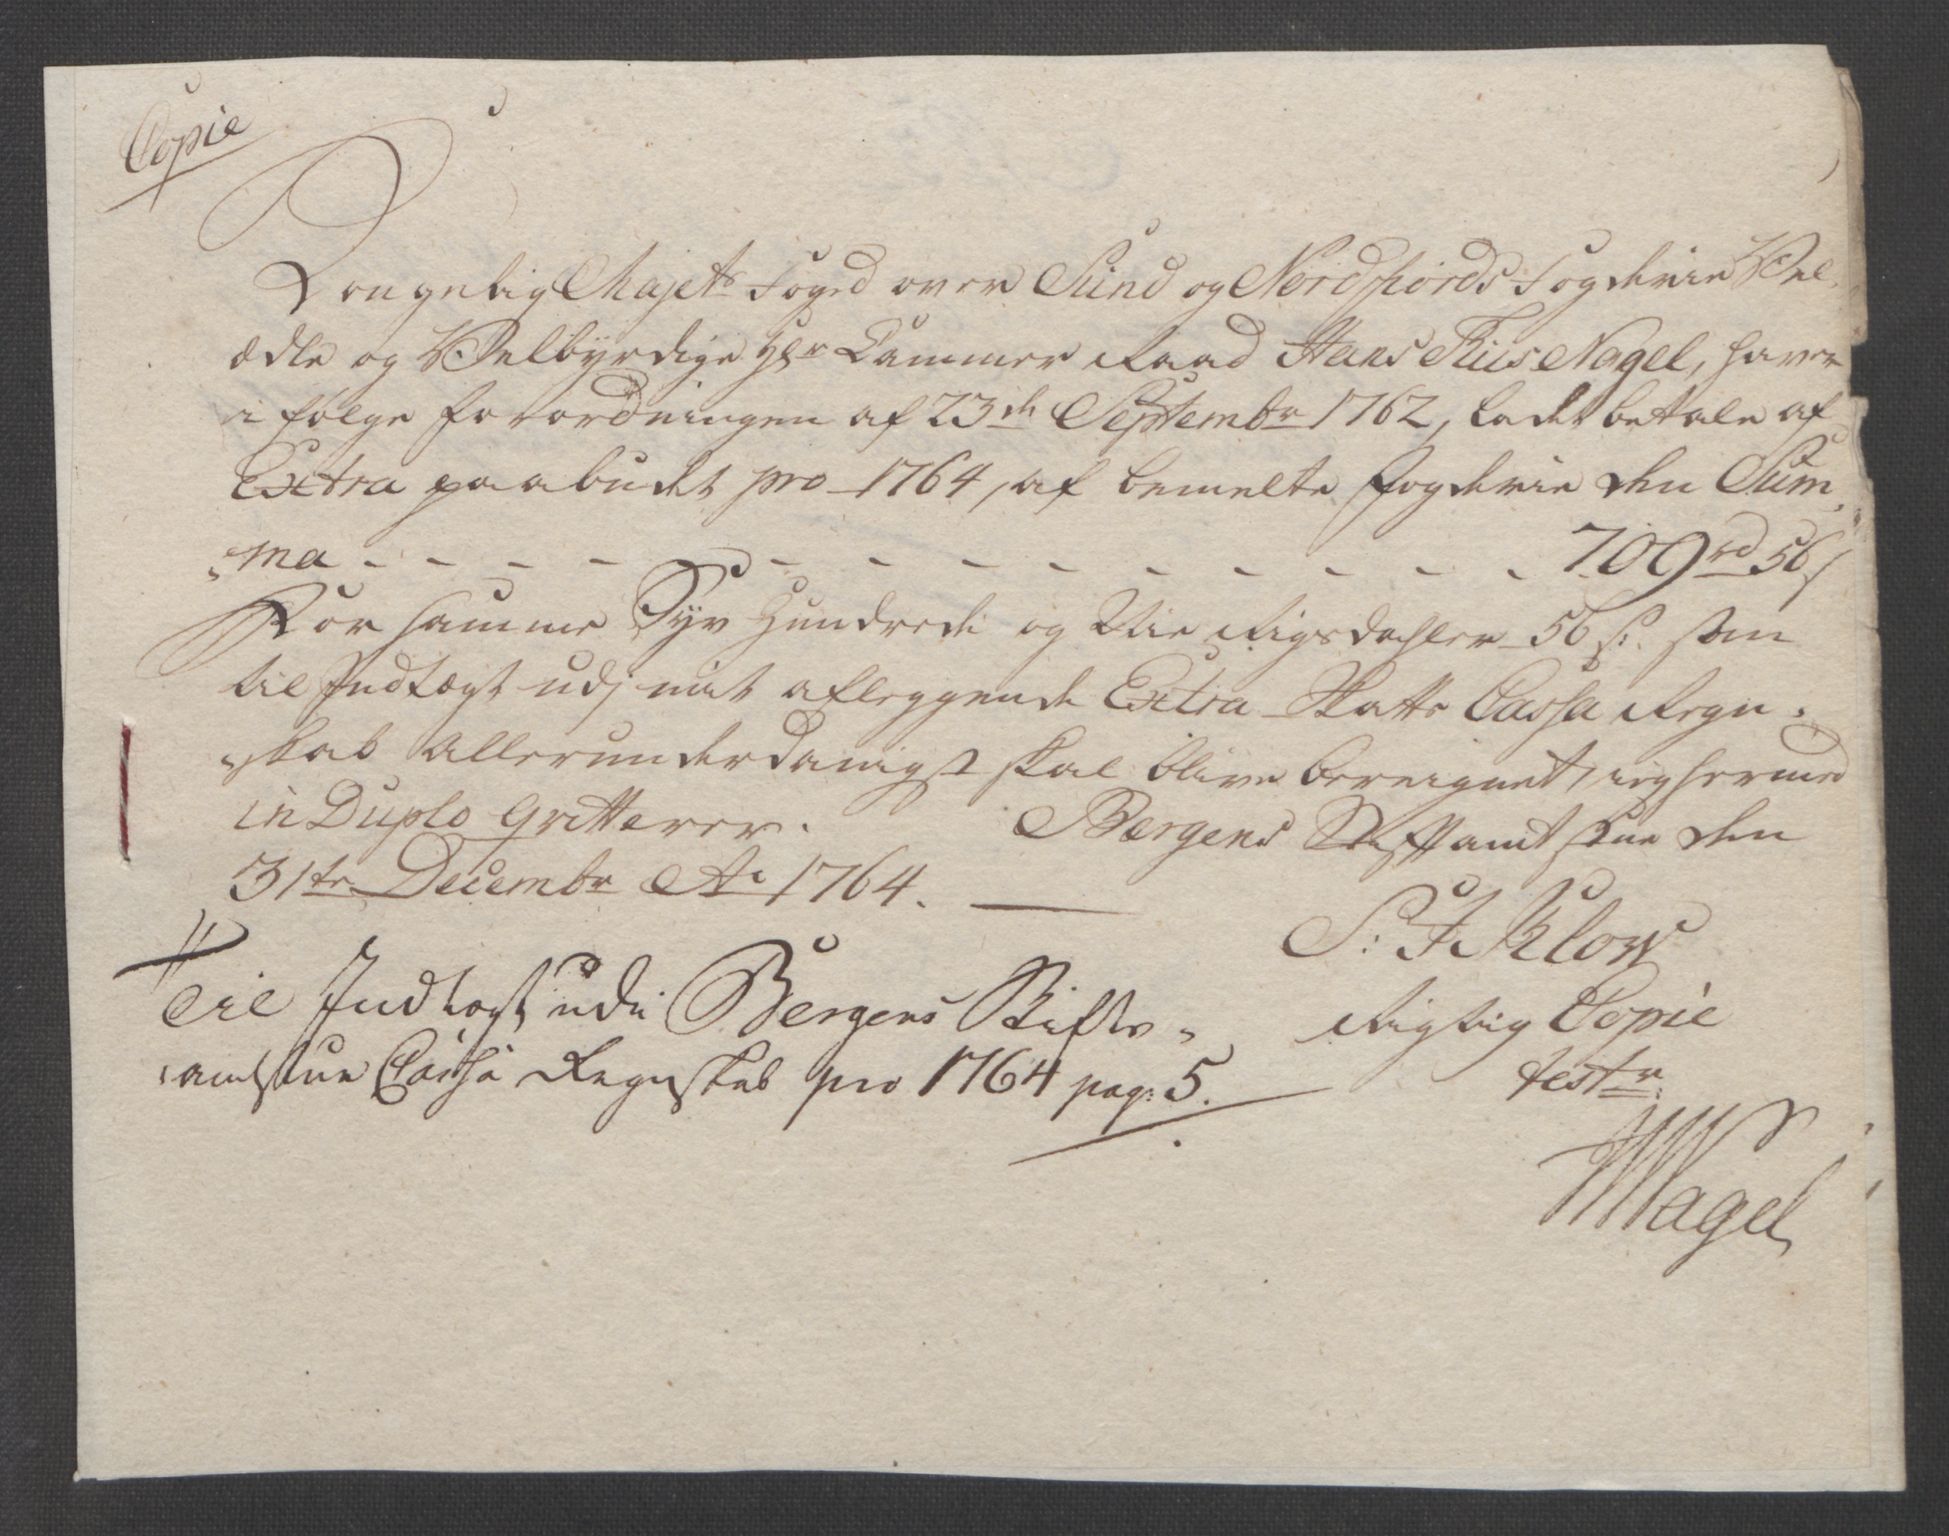 Copie
Kongelig Mayets Foged over Sund og Nordfiords Fogderie Vel-
ædle og Velbyrdige Hr Cammer Raad Hans Thiis Nagel, haver
i følge forordningen af 23de Septembr 1762, ladet betale af
Extra paabudet pro 1764, af bemelte Fogderie den Sum-
„ma - - - - - - - - - - - - - 709 rd 56 s
For samme Syv Hundrede og Nie Rigsdahler 56 s: som
til Indtægt udj mit aflæggende Extra Skatte Cassa Regn-
„skab allerunderdanigst skal blive beregnet, ieg hermed
in Duplo qvitterer. Bergens Stiftamtstue den
31te Decembr Ao 1764.
S: F Klow
Til Indtægt udi Bergens Stifts-
„amtstue Cassa Regnskab pro 1764 pag: 5.
Rigtig Copie
testr:
HTNagel